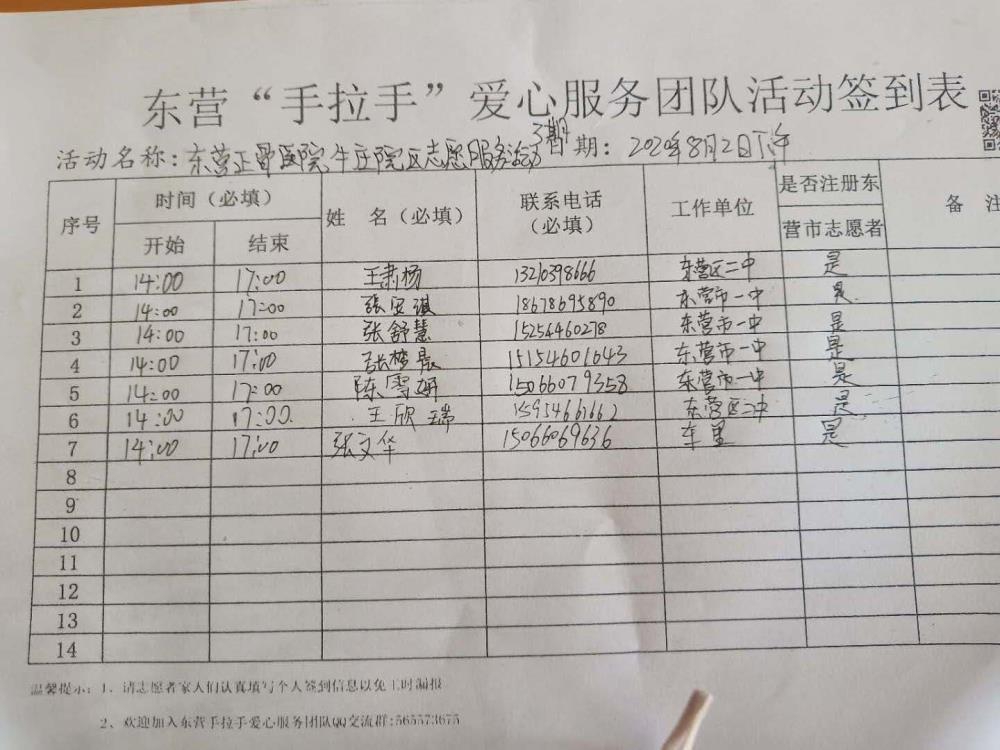 东营“手拉手”爱心服务团队活动签到表
活动名称：东营正骨医院牛庄院区志愿服务活动3期 日期：2020年8月2日下午
序号 时间（必填） 姓 名（必填） 联系电话（必填） 工作单位 是否注册东营市志愿者 备 注
开始 结束
1 14:00 17:00 王肃杨 13210398666 东营区二中 是
2 14:00 17:00 张安琪 18678695890 东营市一中 是
3 14:00 17:00 张舒慧 15254460278 东营市一中 是
4 14:00 17:00 张楚晨 15154601643 东营市一中 是
5 14:00 17:00 陈雪妍 15066079358 东营市一中 是
6 14:00 17:00 王欣瑞 东营区二中 是
7 14:00 17:00 张文华 15066069636 车里 是
8
9
10
11
12
13
14
温馨提示：1、请志愿者家人们认真填写个人签到信息以免工时漏报
2、欢迎加入东营手拉手爱心服务团队QQ交流群:565573675